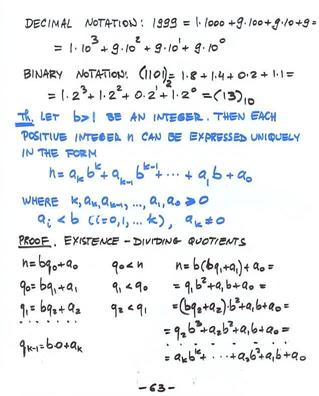 DECIMAL NOTATION: 1999 = 1·1000+9·100+9·10+9=
= 1·10³+9·10²+9·10¹+9·10⁰
BINARY NOTATION: (1101)₂= 1·8+1·4+0·2+1·1=
= 1·2³+1·2²+0·2¹+1·2⁰=(13)₁₀
Th. LET b>1 BE AN INTEGER. THEN EACH
POSITIVE INTEGER n CAN BE EXPRESSED UNIQUELY
IN THE FORM
n=aₖbᵏ+aₖ₋₁bᵏ⁻¹+···+a₁b+a₀
WHERE k,aₖ,aₖ₋₁,...,a₁,a₀ ⩾0
aᵢ<b (i=0,1,...k), aₖ≠0
PROOF. EXISTENCE-DIVIDING QUOTIENTS
n=bq₀+a₀ q₀<n n=b(bq₁+a₁)+a₀=
q₀=bq₁+a₁ q₁<q₀ =q₁b²+a₁b+a₀=
q₁=bq₂+a₂ q₂<q₁ =(bq₂+a₂)·b²+a₁b+a₀=
. . . . . . =q₂b³+a₂b²+a₁b+a₀=
qₖ₋₁=b·0+aₖ =. . . . . . . . .=
=aₖbᵏ+···+a₂b²+a₁b+a₀
-63-